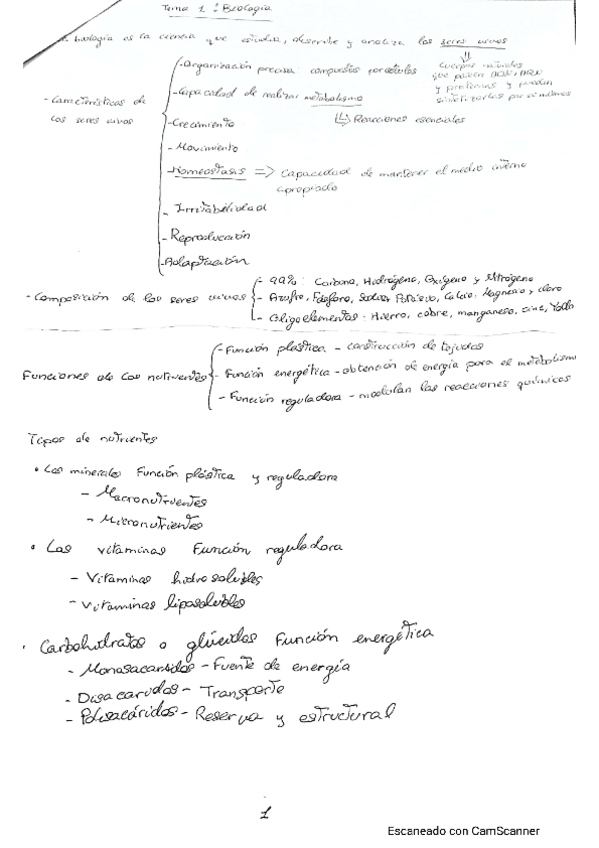 Tema 1: Biología
- biología es la ciencia que estudia, describe y analiza los seres vivos
⇓
Cuerpos naturales
que poseen ADN, ARN
y proteinas y puedan
sintetizarlas por si mismos
- Características de
los seres vivos
- Organización precisa compuestos por células
- Capacidad de realizar metabolismo
↳ Reacciones esenciales
- Crecimiento
- Movimiento
- Homeostasis => Capacidad de mantener el medio interno
apropiado
- Irritabilidad
- Reproducción
- Adaptación
- Composición de los seres vivos
- 99%: Carbono, Hidrógeno, Oxígeno y Nitrógeno
- Azufre, Fósforo, Sodio, Potasio, Calcio, Magnesio, cloro
- Oligoelementos - Hierro, cobre, manganeso, zinc, Yodo
Funciones de los nutrientes
- Función plástica - construcción de tejidos
- Función energética - obtención de energía para el metabolismo
- Función reguladora - modulan las reacciones químicas
Tipos de nutrientes
• Los minerales Función plástica y reguladora
- Macronutrientes
- Micronutrientes
• Las vitaminas Función reguladora
- Vitaminas hidrosolubles
- Vitaminas liposolubles
• Carbohidratos o glúcidos Función energética
- Monosacaridos - Fuente de energía
- Disacaridos - Transporte
- Polisacáridos - Reserva y estructural
1
Escaneado con CamScanner